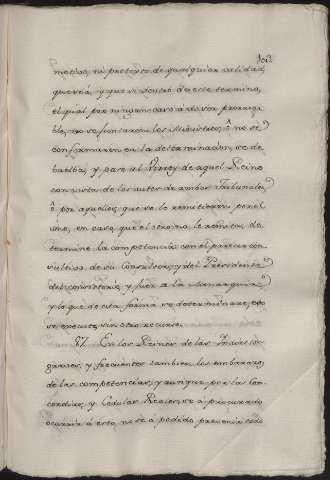 motivo, ni pretexto de qualquier calidad
que sea, y que si dentro de este termino,
el qual por ningun caso á de ser prorroga
ble, no se juntaron los Ministros, ô no se
conformaren en la determinacion, se de
buelba, y pase al Virrey de aquel Reino
con vista de los autos de ambos Tribunales
ô por aquellos, que se le remitieren por el
uno, en caso, que el otro no le remita, de
termine la competencia con el parecer con
sultivo de su Consultor, y del Presidente
del consistorio, y Juez a la Monarquia
y lo que de esta forma se determinare, esto
se execute, sin otro recurso.
57. En los Reinos de las Indias son
graves, y frecuentes tambien los embarazos
de las competencias, y aunque por las Con
cordias, y Cedulas Reales, se á procurado
ocurrir á esto, no se á podido prevenir todo